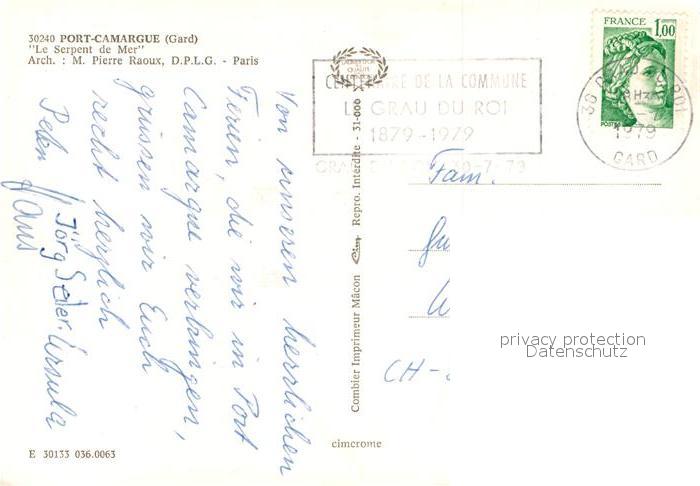 30240 PORT-CAMARGUE (Gard)
"Le Serpent de Mer"
Arch. : M. Pierre Raoux, D.P.L.G. - Paris
Von unseren herrlichen
Ferien, die wir in Port
Camargue verbringen,
grüssen wir Euch
recht herzlich
Jörg Ursula
Hans
E 30133 036.0063
Combier Imprimeur Mâcon Repro. Interdite - 31-006
cimcrome
CENTENAIRE DE LA COMMUNE
LE GRAU DU ROI
1879-1979
FRANCE 1,00
30 ROI
1979
GARD
Fam.
CH-
privacy protection
Datenschutz